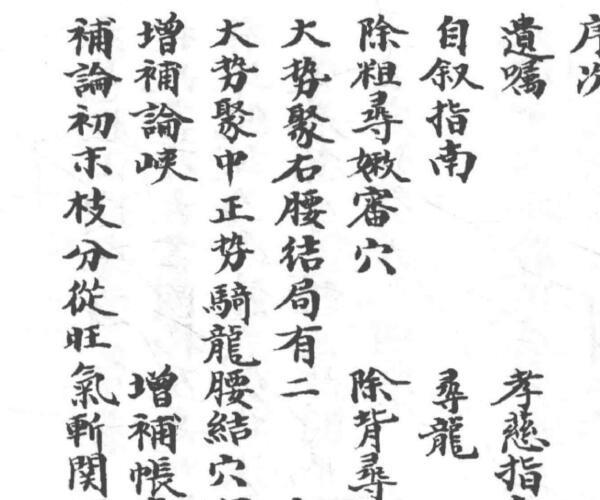 序次
遺嘱 孝慈指
自叙指南 尋龍
除粗尋嫩審穴 除背尋
大势聚右腰结局有二
大势聚中正势騎龍腰結穴
增補論峡 增補帳
補論初末枝分從旺氣斬関